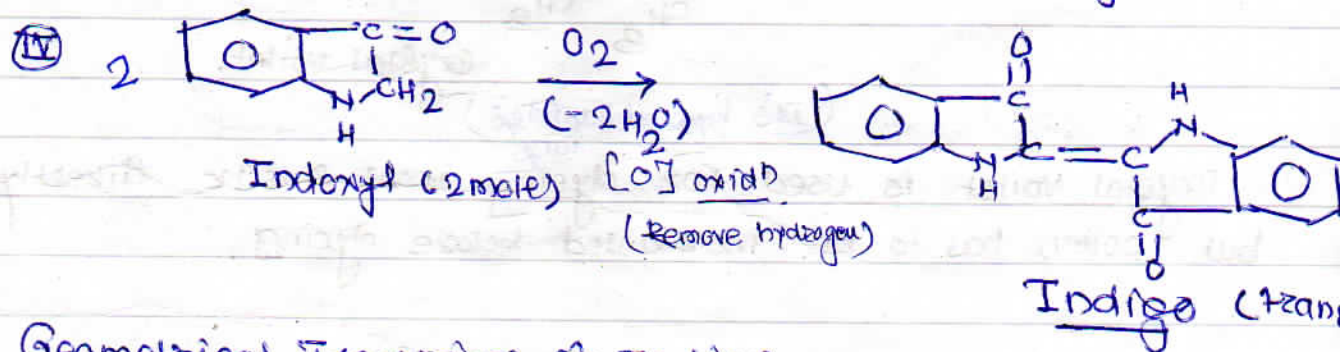 IV 2 C=O CH2 N H
O2
(-2H2O)
Indoxyl (2 mole) [O] oxidn
(Remove hydrogen)
O C N H C=C H N C O
Indigo (trans
Geometrical